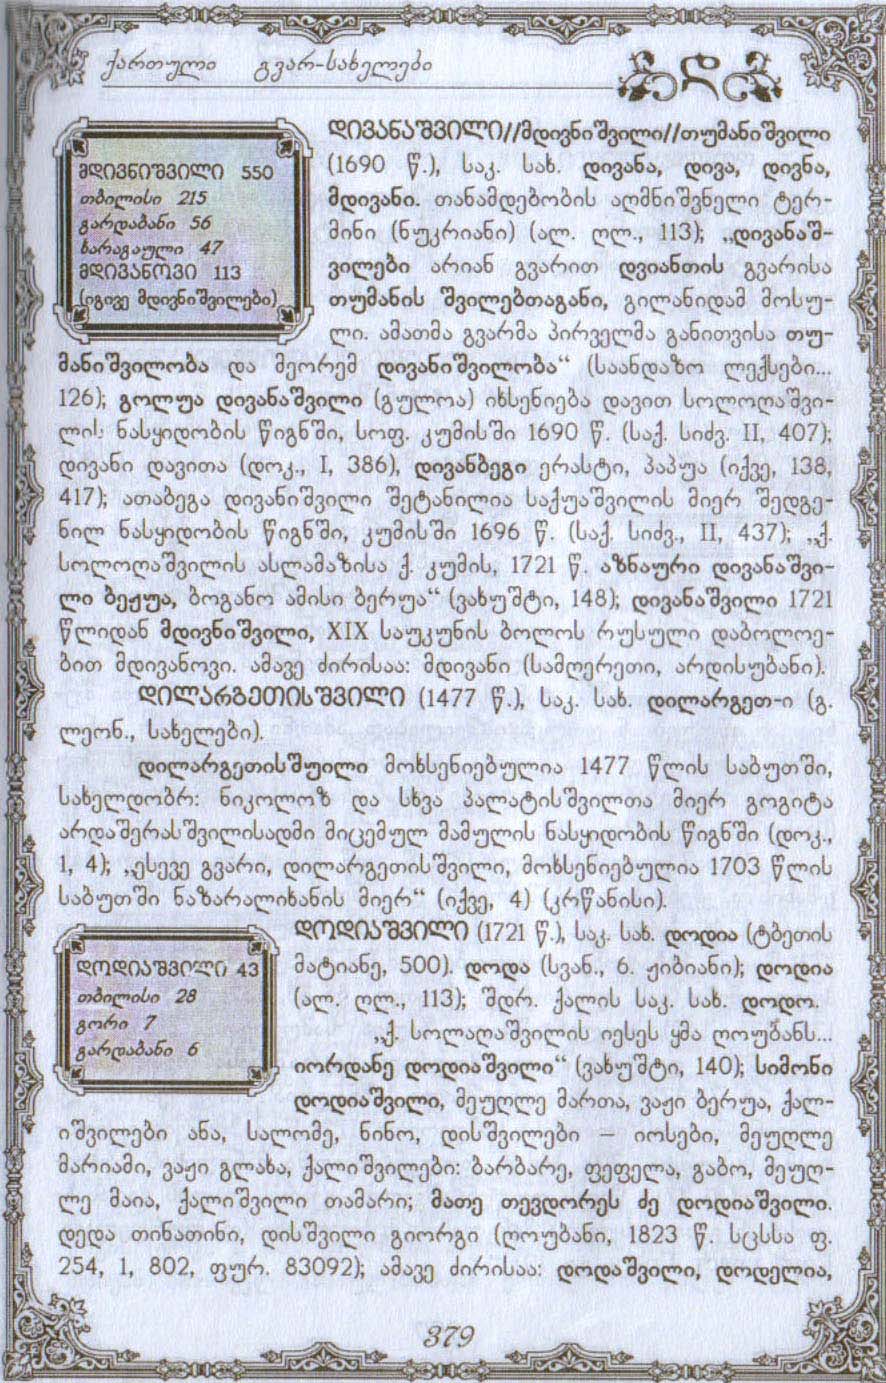 ქართული გვარ-სახელები
დ
მდივნიშვილი 550
თბილისი 215
გარდაბანი 56
ხარაგაული 47
მდივანოვი 113
(იგივე მდივნიშვილები)
დივანაშვილი//მდივნიშვილი//თუმანიშვილი
(1690 წ.), საკ. სახ. დივანა, დივა, დივნა,
მდივანი. თანამდებობის აღმნიშვნელი ტერ-
მინი (ნუკრიანი) (ალ. ღლ., 113); „დივანაშ-
ვილები არიან გვარით დვიანთის გვარისა
თუმანის შვილებთაგანი, გილანიდამ მოსუ-
ლი. ამათმა გვარმა პირველმა განითვისა თუ-
მანიშვილობა და მეორემ დივანიშვილობა“ (საანდაზო ლექსები...
126); გოლუა დივანაშვილი (გულოა) იხსენიება დავით სოლოღაშვი-
ლის ნასყიდობის წიგნში, სოფ. კუმისში 1690 წ. (საქ. სიძვ. II, 407);
დივანი დავითა (დოკ., I, 386), დივანბეგი ერასტი, პაპუა (იქვე, 138,
417); ათაბეგა დივანიშვილი შეტანილია საქუაშვილის მიერ შედგე-
ნილ ნასყიდობის წიგნში, კუმისში 1696 წ. (საქ. სიძვ., II, 437); „ქ.
სოლოღაშვილის ასლამაზისა ქ. კუმის, 1721 წ. აზნაური დივანაშვი-
ლი ბეჟუა, ბოგანო ამისი ბერუა“ (ვახუშტი, 148); დივანაშვილი 1721
წლიდან მდივნიშვილი, XIX საუკუნის ბოლოს რუსული დაბოლოე-
ბით მდივანოვი. ამავე ძირისაა: მდივანი (სამღერეთი, არდისუბანი).
დილარგეთისშვილი (1477 წ.), საკ. სახ. დილარგეთ-ი (გ.
ლეონ., სახელები).
დილარგეთისშუილი მოხსენიებულია 1477 წლის საბუთში,
სახელდობრ: ნიკოლოზ და სხვა პალატისშვილთა მიერ გოგიტა
არდაშერასშვილისადმი მიცემულ მამულის ნასყიდობის წიგნში (დოკ.,
1, 4); „ესევე გვარი, დილარგეთისშვილი, მოხსენიებულია 1703 წლის
საბუთში ნაზარალიხანის მიერ“ (იქვე, 4) (კრწანისი).
დოდიაშვილი 43
თბილისი 28
გორი 7
გარდაბანი 6
დოდიაშვილი (1721 წ.), საკ. სახ. დოდია (ტბეთის
მატიანე, 500). დოდა (სვან., 6. ჟიბიანი); დოდია
(ალ. ღლ., 113); შდრ. ქალის საკ. სახ. დოდო.
„ქ. სოლაღაშვილის იესეს ყმა ღოუბანს...
იორდანე დოდიაშვილი“ (ვახუშტი, 140); სიმონი
დოდიაშვილი, მეუღლე მართა, ვაჟი ბერუა, ქალ-
იშვილები ანა, სალომე, ნინო, დისშვილები – იოსები, მეუღლე
მარიამი, ვაჟი გლახა, ქალიშვილები: ბარბარე, ფეფელა, გაბო, მეუღ-
ლე მაია, ქალიშვილი თამარი; მათე თევდორეს ძე დოდიაშვილი.
დედა თინათინი, დისშვილი გიორგი (ღოუბანი, 1823 წ. სცსსა ფ.
254, 1, 802, ფურ. 83092); ამავე ძირისაა: დოდაშვილი, დოდელია,
379